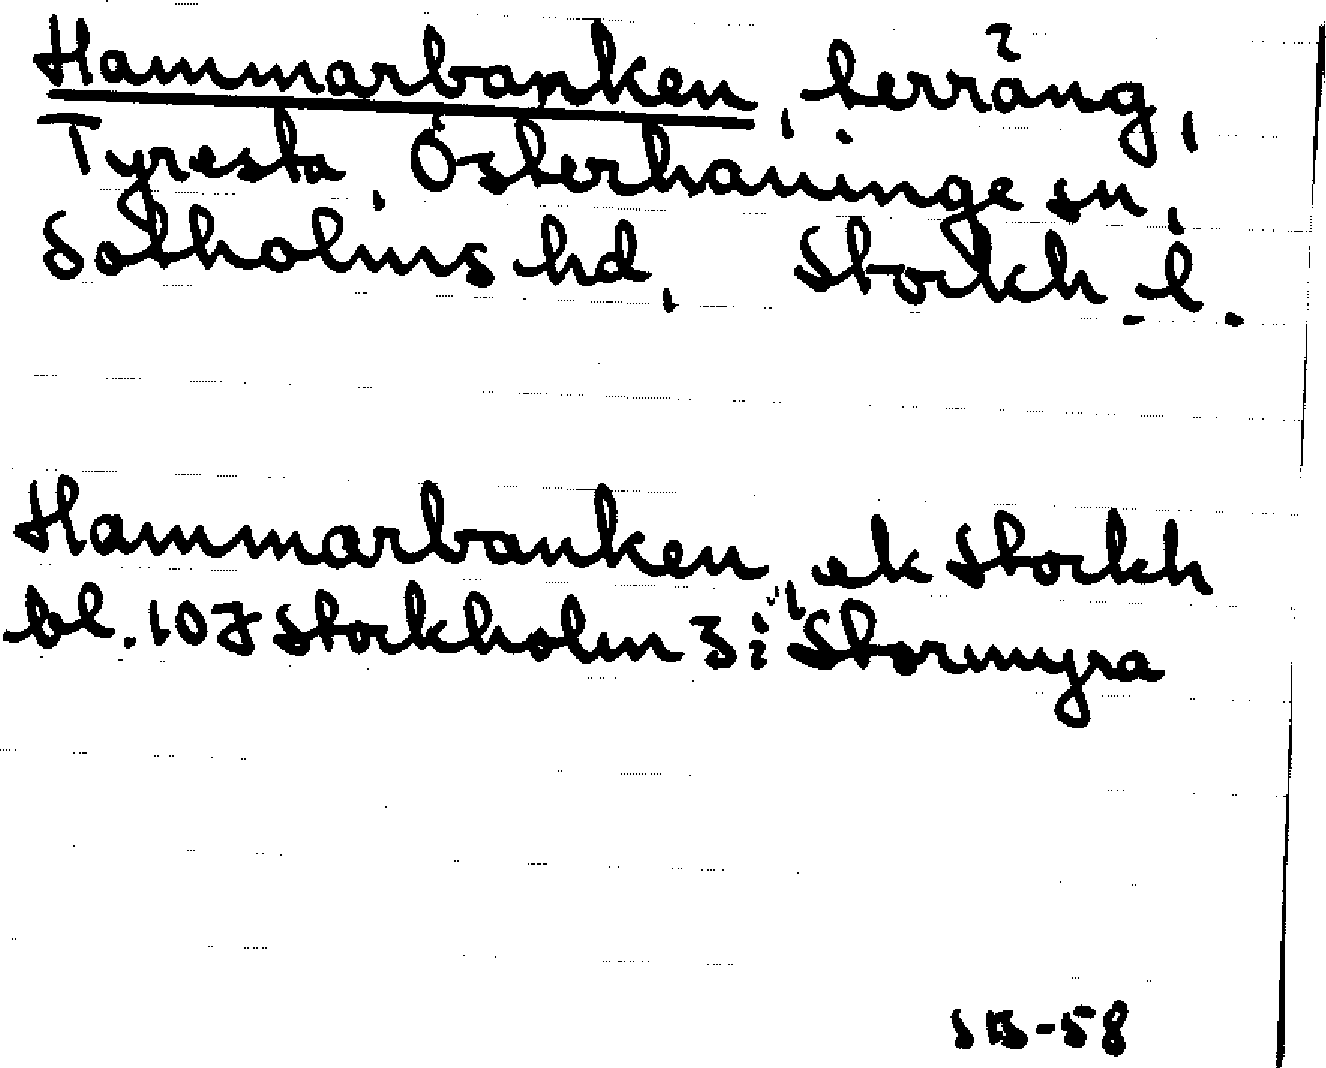 Hammarbanken, terräng,
Tyresta, Österhaninge sn,
Sotholms hd, Stockh. l.
Hammarbanken, ek Stockh
bl. 107 Stockholm 3: Stormyra
SB-58